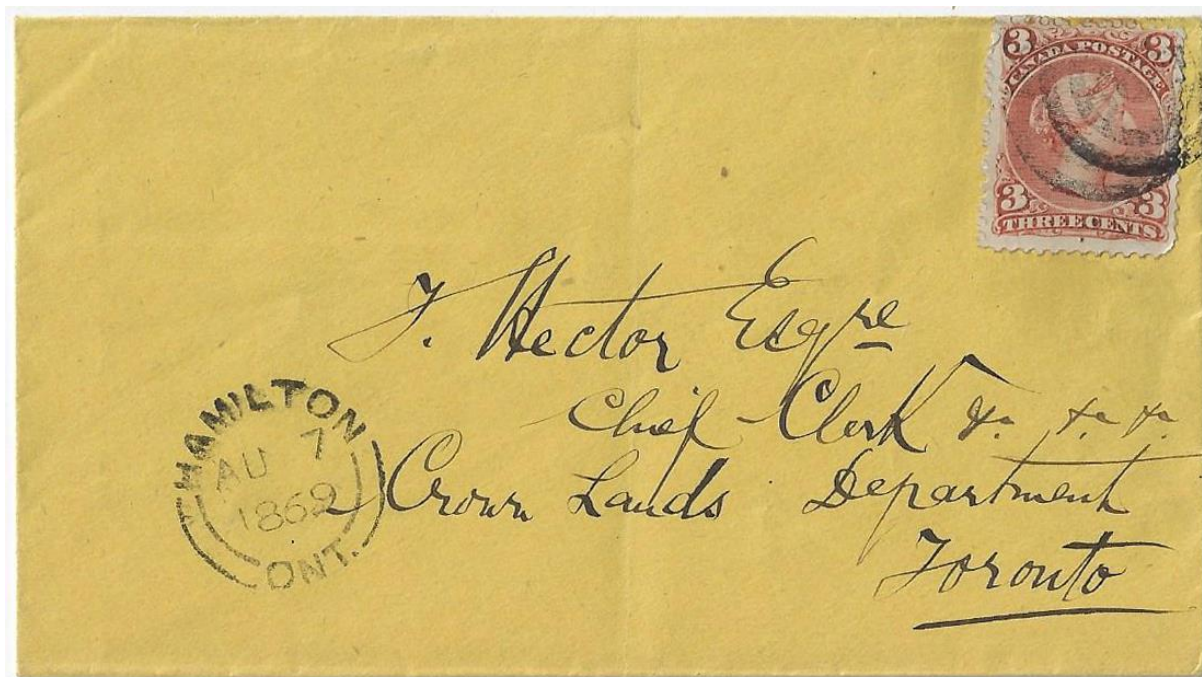 3 3
CANADA POSTAGE
3 3
THREE CENTS
T. Hector Esqre
Chief Clerk &c &c &c
Crown Lands Department
Toronto
HAMILTON
AU 7
1869
ONT.